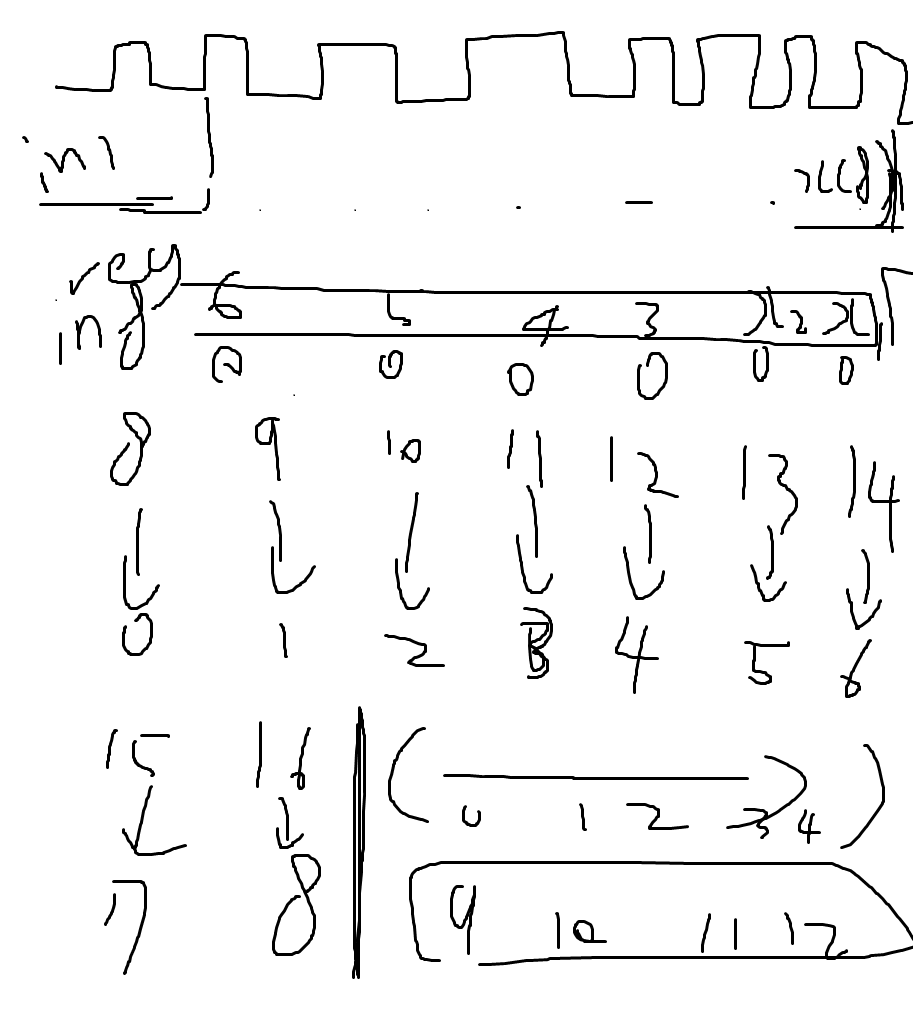 in1
x(8)
reg
in8 6 5 4 3 x2 x
0 0 0 0 0 0
8 9 10 11 12 13 14
0 1 2 3 4 5 6
15 16
0 1 2 3 4
7 8
9 10 11 12